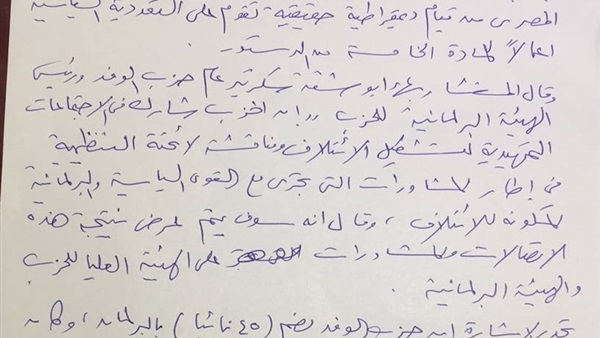 المصرى من قيام ديمقراطية حقيقية تقوم على التعددية السياسية
اعمالاً للمادة الخامسة من الدستور.
وقال المستشار بهاء ابو شقة سكرتير عام حزب الوفد ورئيس
الهيئة البرلمانية للحزب ,, ان الحزب شارك فى الاجتماعات
التمهيدية لتشكيل الائتلاف ومناقشة لائحته التنظيمية
فى إطار المشاورات التى تجرى مع القوى السياسية والبرلمانية
المكونه للائتلاف ، وقال انه سوف يتم عرض نتيجة هذه
الاتصالات والمشاورات على الهيئة العليا للحزب
والهيئة البرلمانية .
تجدر الاشارة ان حزب الوفد يضم (٤٥ نائبا) بالبرلمان ، وكان